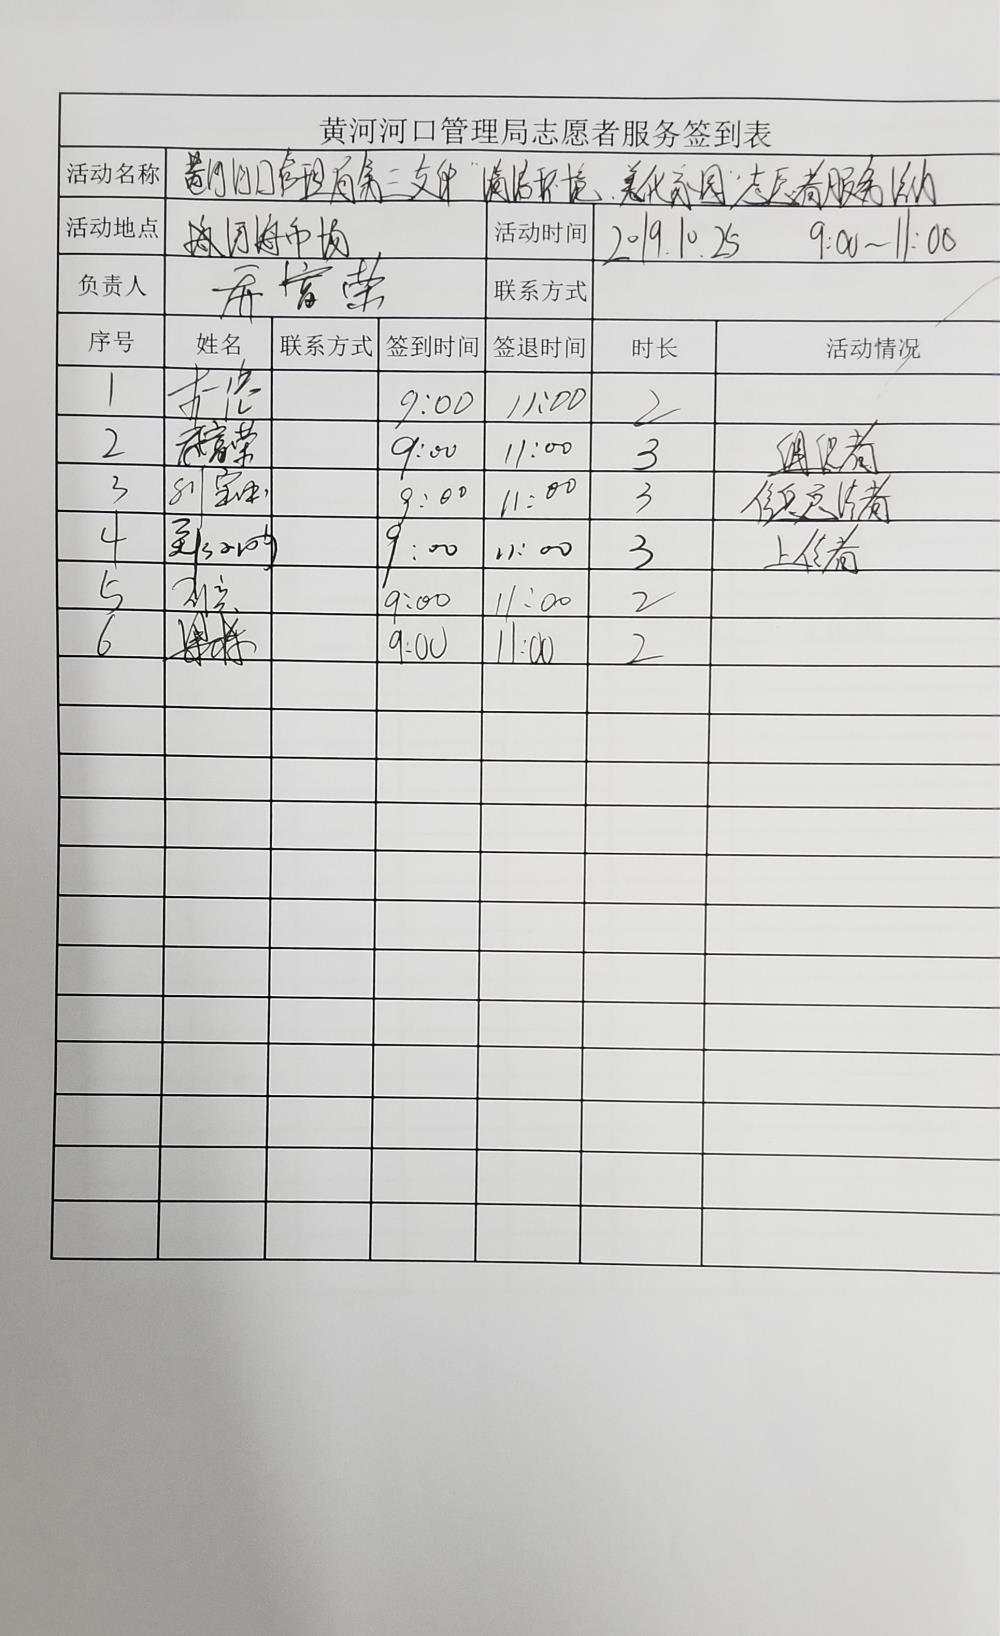 黄河河口管理局志愿者服务签到表
活动名称 黄河河口管理局第三支部"清洁环境、美化家园"志愿者服务活动
活动地点 活动时间 2019.10.25 9:00~11:00
负责人 富荣 联系方式
序号 姓名 联系方式 签到时间 签退时间 时长 活动情况
1 9:00 11:00 2
2 富荣 9:00 11:00 3 组织者
3 9:00 11:00 3 信息员 者
4 9:00 11:00 3 上传者
5 9:00 11:00 2
6 9:00 11:00 2